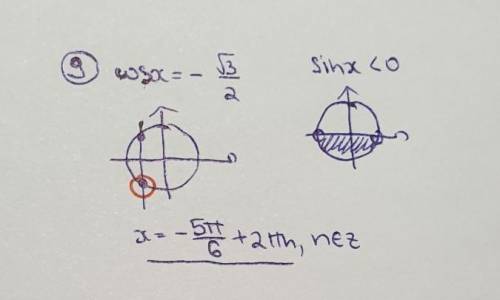 9 cosx = - √3/2 sinx < 0
x = - 5π/6 + 2πn, n∈z